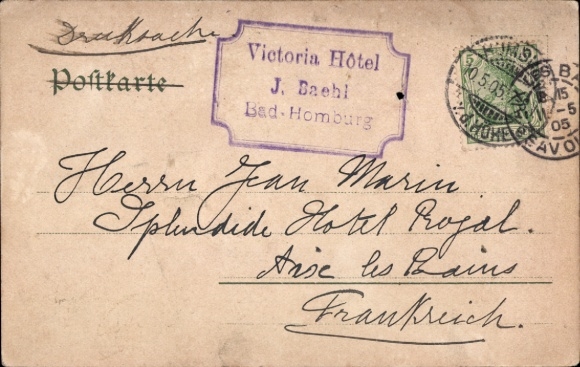 Drucksache
Postkarte
Victoria Hôtel
J. Baehl
Bad-Homburg
5
HOMBURG
10.5.05
HÖHE
LES B
15
-5
05
SAVOIE
Herrn Jean Marin
Splendide Hotel Royal.
Aixe les Bains
Frankreich.